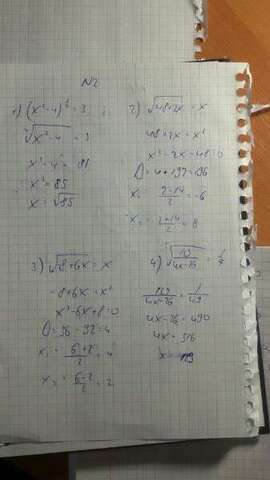 N2
1) (x²-4) = 3
√x²-4 = 3
x²-4 = 81
x² = 85
x = √85
2) √48+2x = x
48+2x = x²
x²-2x-48=0
D=4+192=196
x₁ = (2-14)/2 = -6
x₂ = (2+14)/2 = 8
3) √-8+6x = x
-8+6x=x²
x²-6x+8=0
D=36-32=4
x₁ = (6+2)/2 = 4
x₂ = (6-2)/2 = 2
4)
4x-26=490
4x=516
x=129